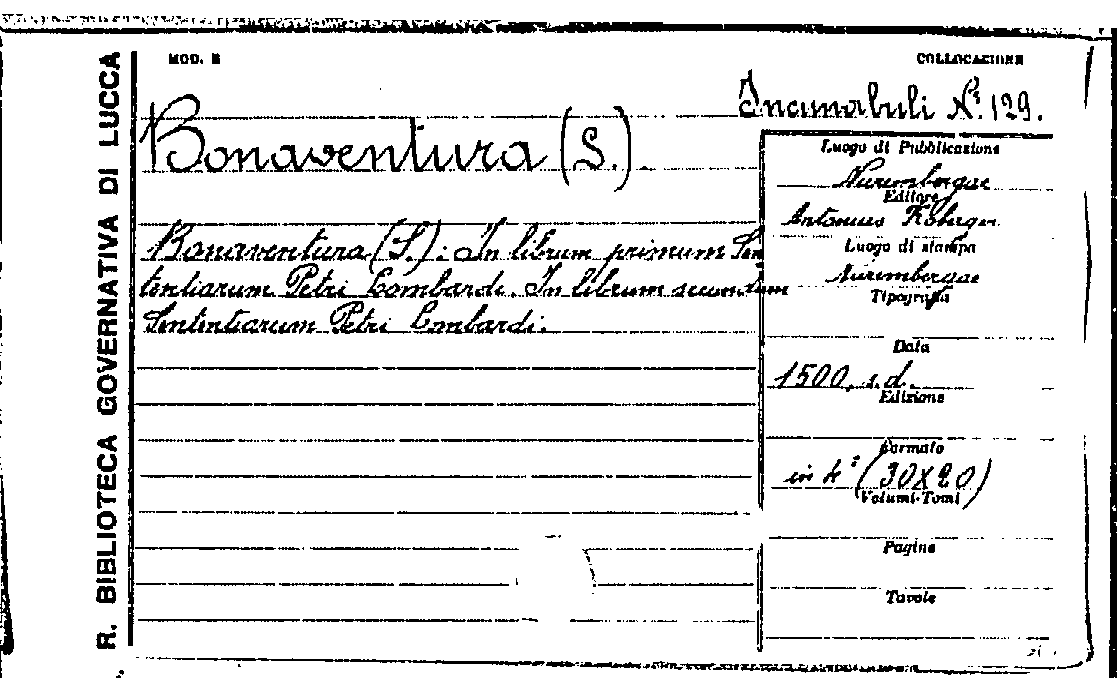 R. BIBLIOTECA GOVERNATIVA DI LUCCA
MOD. E
COLLOCAZIONE
Incunabuli N.° 129.
Bonaventura (S.).
Bonaventura (S.): In librum primum Sen
tentiarum Petri Lombardi. In librum secundum
Sententiarum Petri Lombardi.
Luogo di Pubblicazione
Nurembergae
Editore
Antonius Koberger
Luogo di stampa
Nurembergae
Tipografia
Data
1500, s.d.
Edizione
Formato
in 4° (30X20)
Volumi-Tomi
Pagine
Tavole